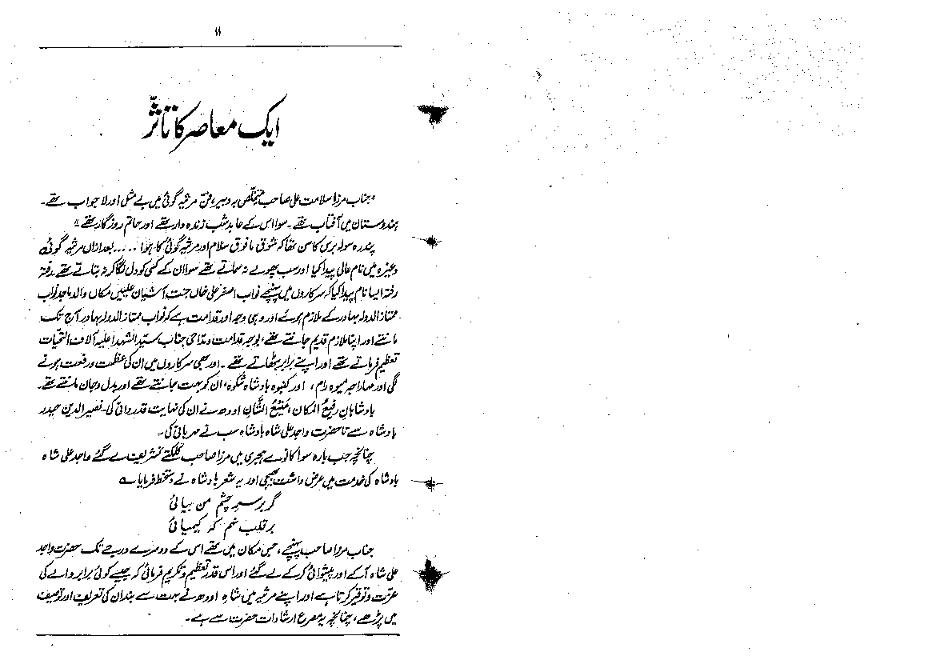 ۱۱
ایک معاصر کا تاثّر
"جناب مرزا سلامت علی صاحب متخلص بہ دبیر، فنِ مرثیہ گوئی میں بے مثل اور لاجواب تھے۔
ہندوستان میں آفتاب تھے۔ سوا اس کے عابد شب زندہ دار تھے اور حاتم روزگار تھے۔"
پندرہ سولہ برس کا سن تھا کہ شوق مافوق سلام اور مرثیہ گوئی کا ہوا ..... بعد ازاں مرثیہ گوئی
وغیرہ میں نام عالی پیدا کیا اور سب پھولے نہ سماتے تھے سوا ان کے کسی کو دل لگا کر نہ بناتے تھے۔ رفتہ
رفتہ ایسا نام پیدا کیا کہ سرکاروں میں پہنچے نواب اصغر علی خاں جنت آشیان علیین مکاں والد ماجد نواب
ممتاز الدولہ بہادر کے ملازم ہوئے اور وہی وجہ اور قدامت ہے کہ نواب ممتاز الدولہ بہادر آج تک
مانتے اور اپنا ملازم قدیم جانتے تھے، بوجہ قدامت و مدّاحی جناب سیّد الشہدا علیہ آلاف التحیات
تعظیم فرماتے تھے اور اپنے برابر بٹھاتے تھے۔ اور بھی سرکاروں میں ان کی عظمت و رفعت ہونے
لگی اور مہاراجہ میوہ رام، اور کنبوہ بادشاہ شکوہ، ان کو بہت جانتے تھے اور بدل و جان مانتے تھے۔
بادشاہانِ رفیعُ المکان، منیعُ الشّان اودھ نے ان کی نہایت قدردانی کی۔ نصیر الدین حیدر
بادشاہ سے تا حضرت واجد علی شاہ بادشاہ سب نے مہربانی کی۔
چنانچہ جب بارہ سو اکانوے ہجری میں مرزا صاحب کلکتے تشریف لے گئے واجد علی شاہ
بادشاہ کی خدمت میں عرض داشت بھیجی اور یہ شعر بادشاہ نے دستخط فرمایا ؎
گر بر سرِ چشم من بیائی
بر قلب نہم کہ کیمیائی
جناب مرزا صاحب پہنچے، جس مکان میں تھے اس کے دوسرے درجے تک حضرت واجد
علی شاہ آکے اور پیشوائی کر کے لے گئے اور اس قدر تعظیم و تکریم فرمائی کہ جیسے کوئی برابر والے کی
عزت و توقیر کرتا ہے اور اپنے مرثیہ میں شاہِ اودھ نے بہت سے بند ان کی تعریف اور توصیف
میں پڑھے، چنانچہ یہ مصرع ارشادات حضرت سے ہے۔